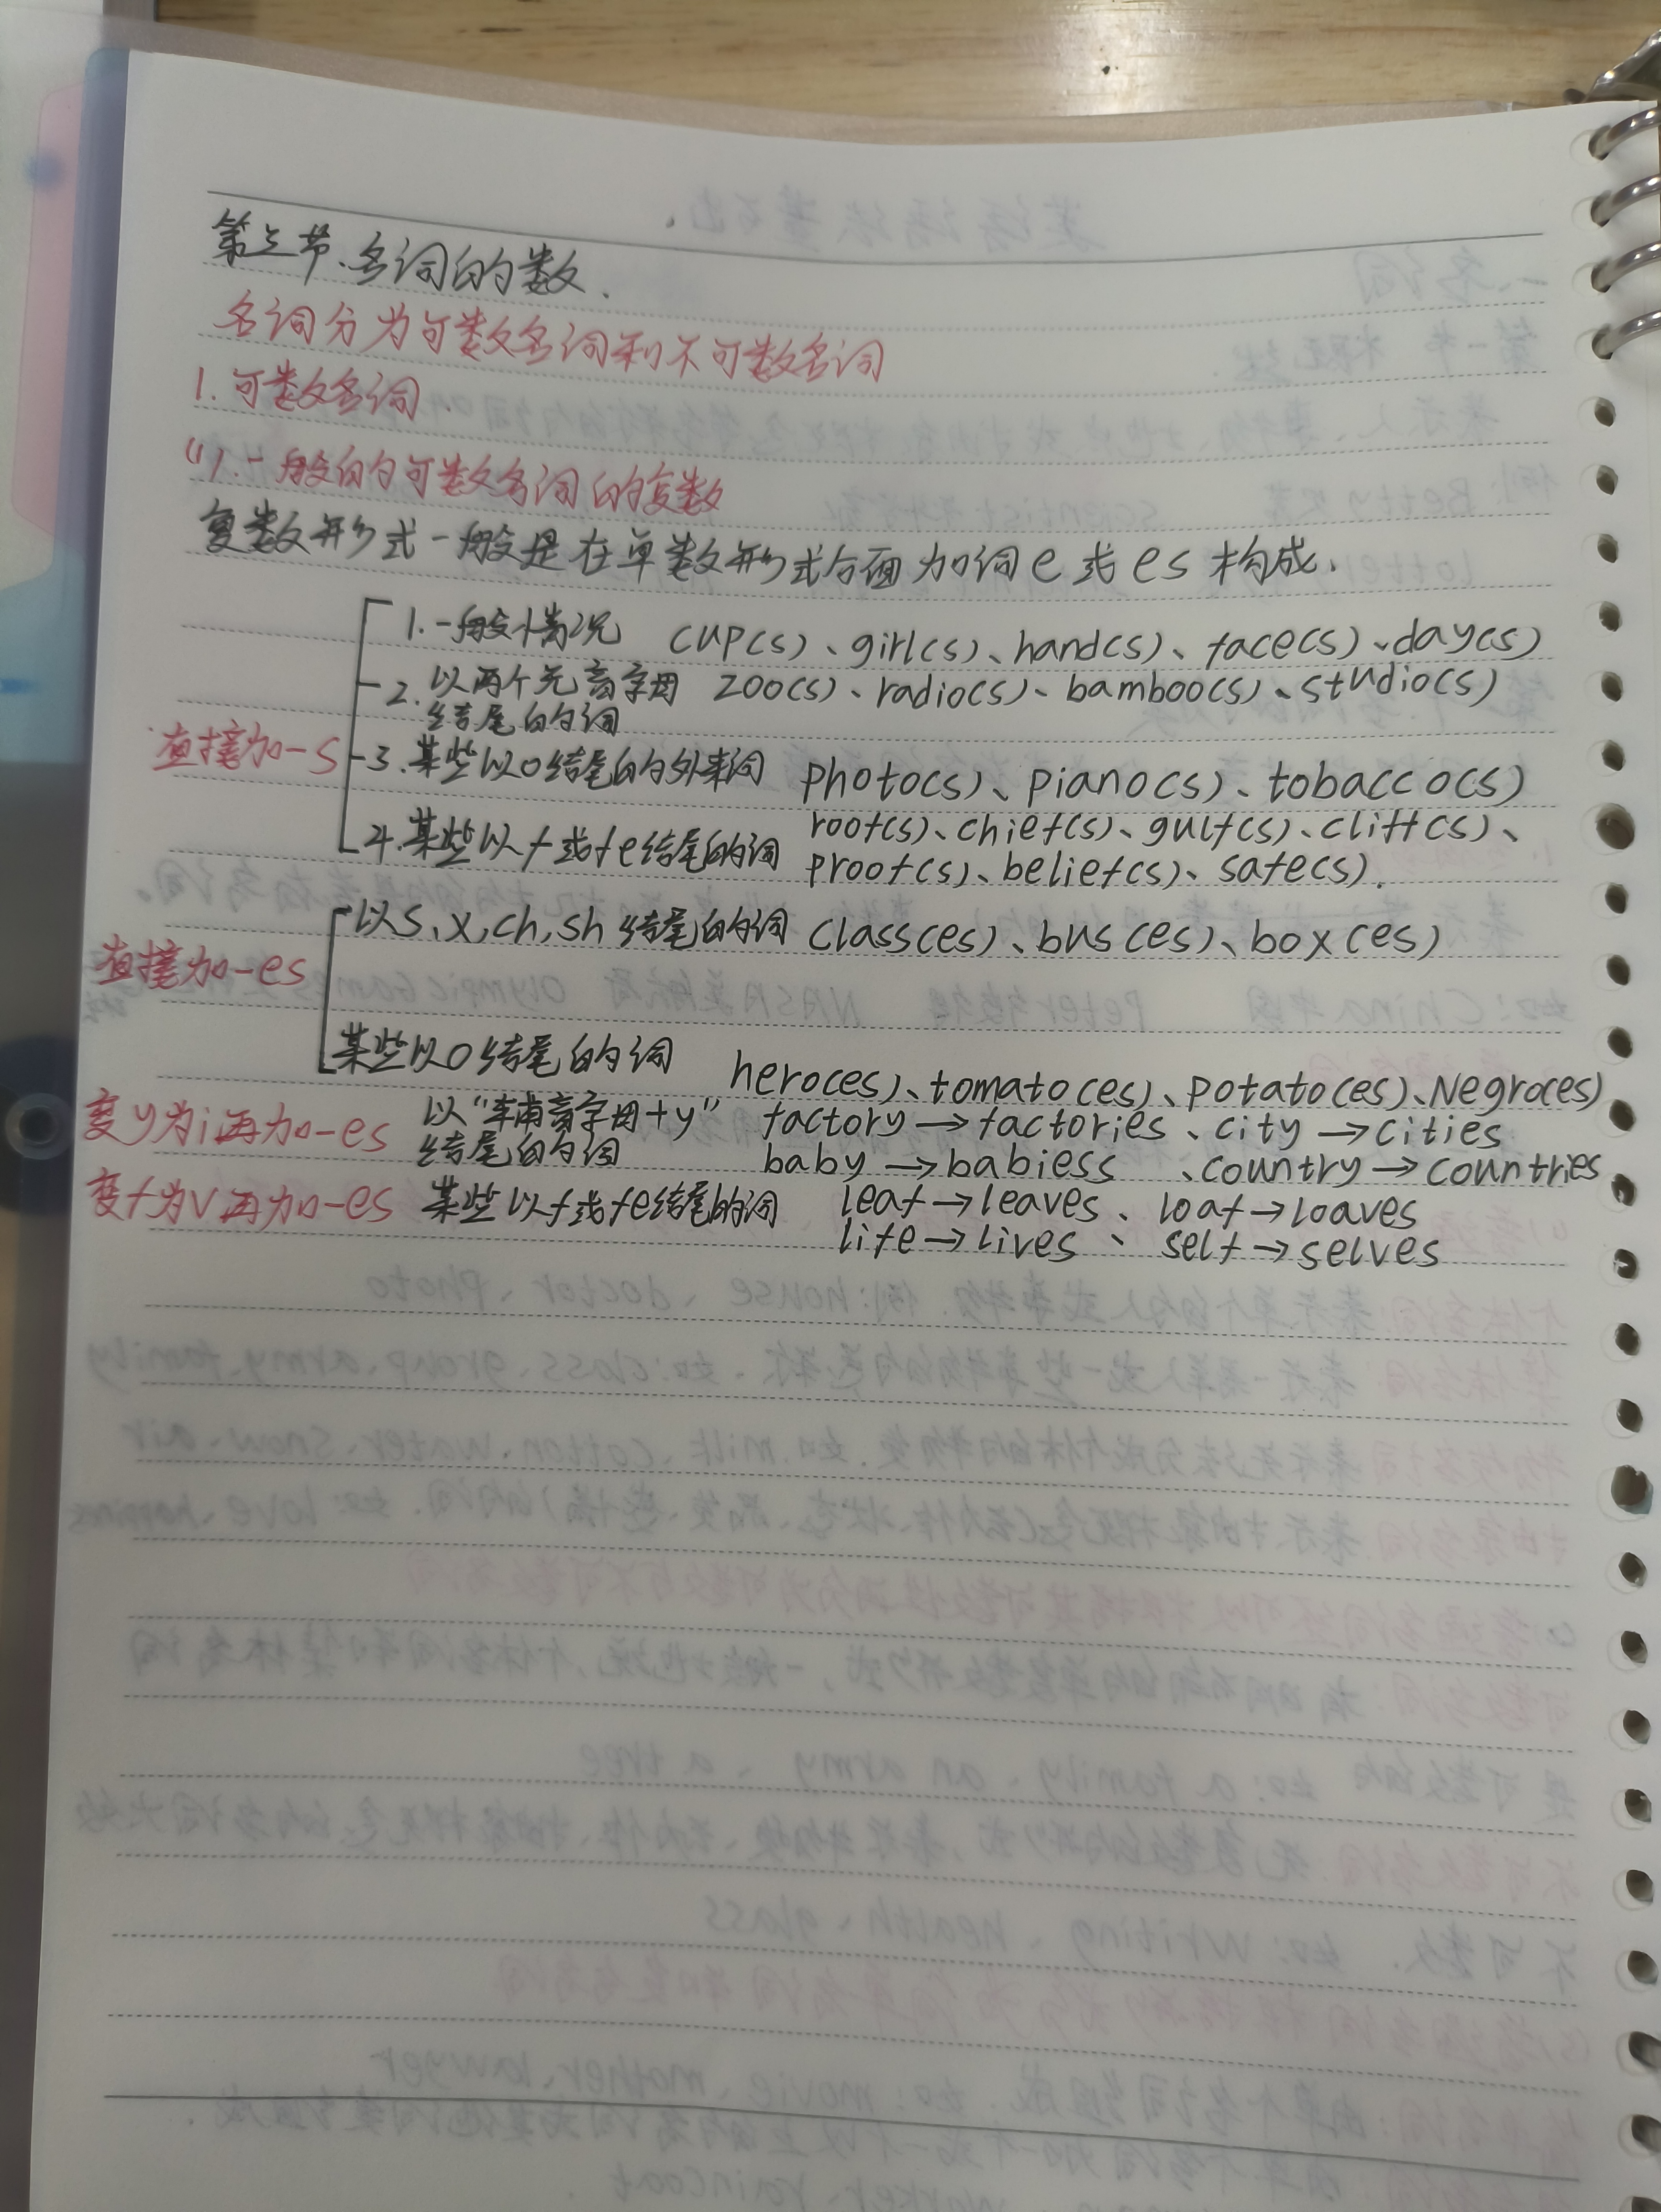 第二节、名词的数.
名词分为可数名词和不可数名词
1.可数名词
(1).一般的可数名词的复数
复数形式一般是在单数形式后面加词e或es构成.
直接加-s
1.一般情况 cup(s)、girl(s)、hand(s)、face(s)、day(s)
2.以两个元音字母结尾的词 zoo(s)、radio(s)、bamboo(s)、studio(s)
3.某些以o结尾的外来词 photo(s)、piano(s)、tobacco(s)
4.某些以f或fe结尾的词 roof(s)、chief(s)、gulf(s)、cliff(s)、
proof(s)、belief(s)、safe(s).
直接加-es
以s,x,ch,sh结尾的词 class(es)、bus(es)、box(es)
某些以o结尾的词 hero(es)、tomato(es)、potato(es)、Negro(es)
变y为i再加-es 以“辅音字母+y” factory→factories、city→cities
结尾的词 baby→babiess、country→countries
变f为v再加-es 某些以f或fe结尾的词 leaf→leaves、loaf→loaves
life→lives、self→selves